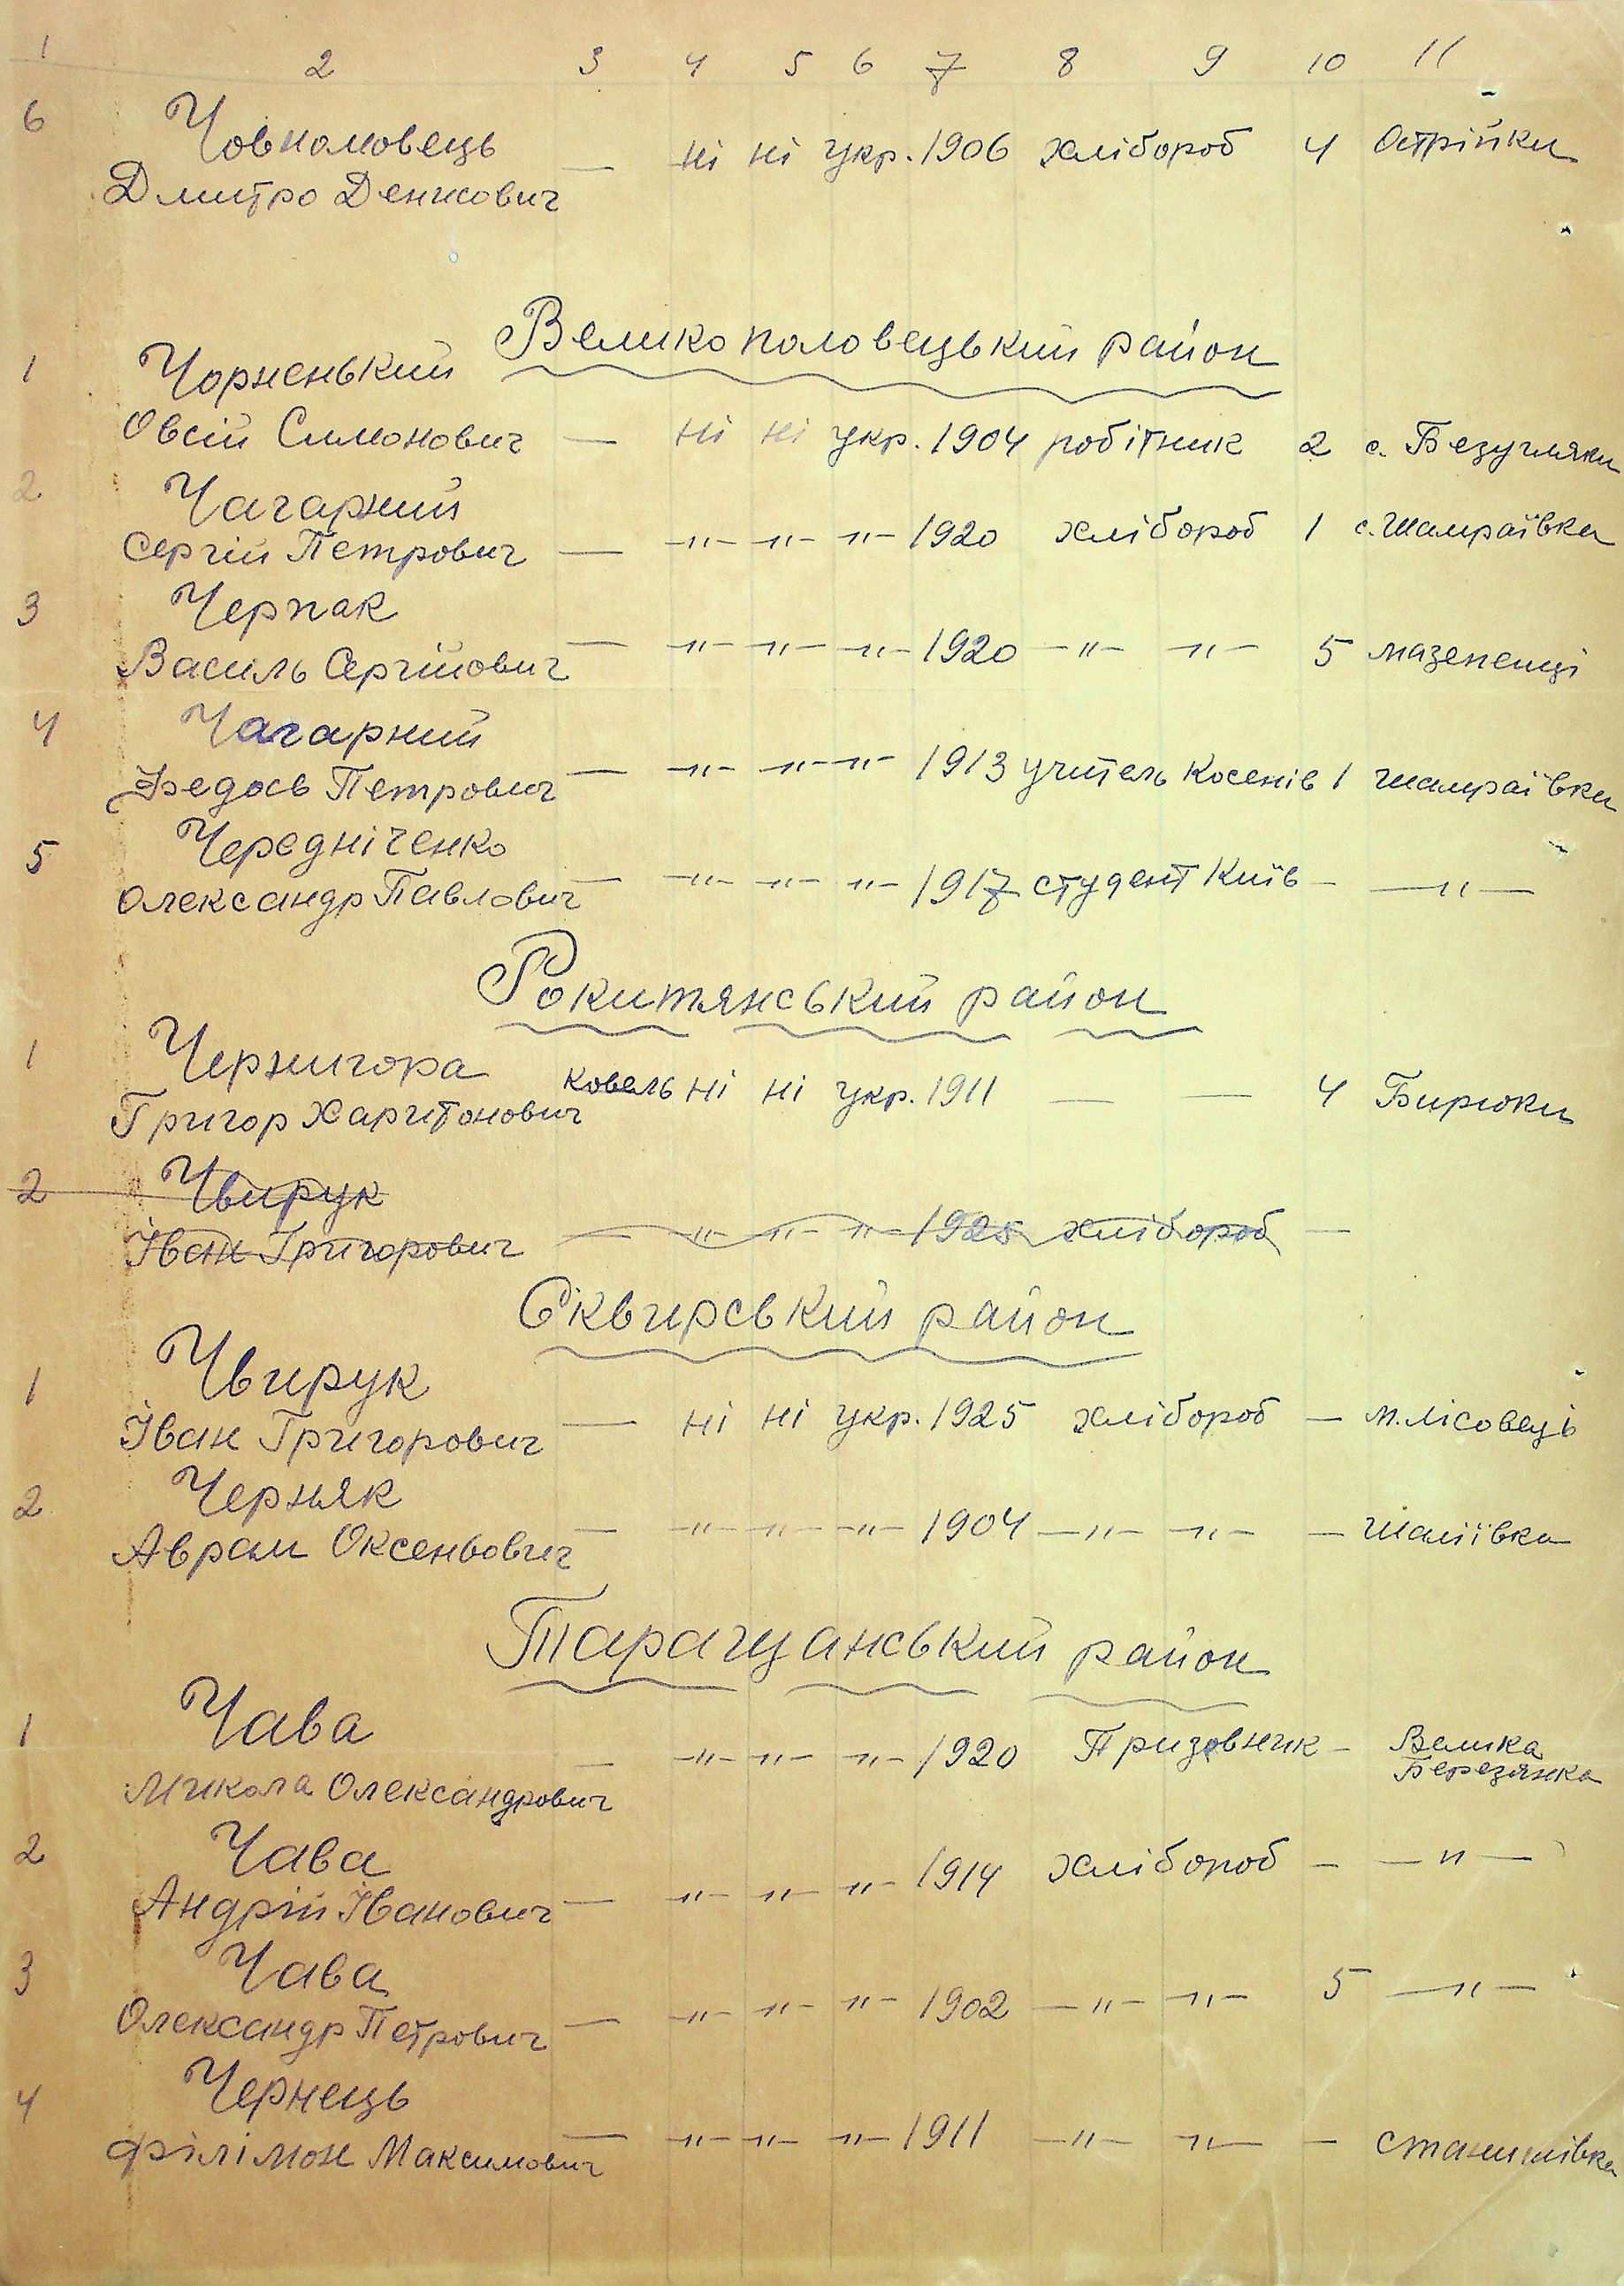 1 2 3 4 5 6 7 8 9 10 11
6 Човноловець
Дмитро Денисович — ні ні укр. 1906 хлібороб 4 Острійки
Великополовецький район
1 Чорненький
Овсій Симонович — ні ні укр. 1904 робітник 2 с. Безугляки
2 Чагарний
Сергій Петрович — —"— —"— —"— 1920 хлібороб 1 с. Шамраївка
3 Черпак
Василь Сергійович — —"— —"— —"— 1920 —"— —"— 5 мазепенці
4 Чагарний
Федось Петрович — —"— —"— —"— 1913 учитель Косенів 1 Шамраївки
5 Чередніченко
Олександр Павлович — —"— —"— —"— 1917 студент Київ — —"—
Рокитянський район
1 Чернигора
Григор Харитонович Ковель ні ні укр. 1911 — — 4 Бирюки
2 Чвирук
Іван Григорович — —"— —"— —"— 1925 хлібороб —
Сквирський район
1 Чвирук
Іван Григорович — ні ні укр. 1925 хлібороб — м. Лісовець
2 Черняк
Аврам Оксеньович — —"— —"— —"— 1904 —"— —"— — Шаліївка
Таращанський район
1 Чава
Микола Олександрович — —"— —"— —"— 1920 Призовник — Велика Березянка
2 Чава
Андрій Іванович — —"— —"— —"— 1914 хлібороб — —"—
3 Чава
Олександр Петрович — —"— —"— —"— 1902 —"— —"— 5 —"—
4 Чернець
Філімон Максимович — —"— —"— —"— 1911 —"— —"— — Станишівка